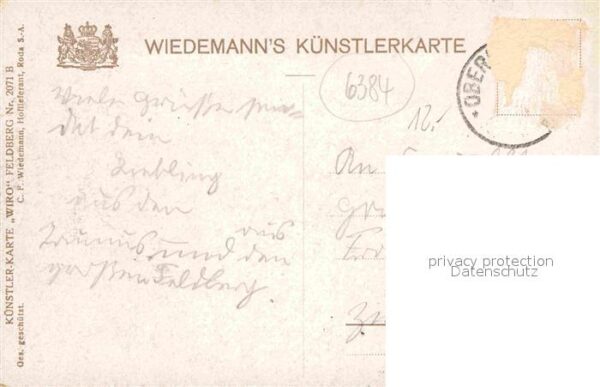 WIEDEMANN'S KÜNSTLERKARTE
KÜNSTLER-KARTE „WIRO" FELDBERG Nr. 2071 B
C. F. Wiedemann, Hoflieferant, Roda S.-A.
Ges. geschützt.
6384
12.-
* OBER
Viele Grüße sen=
det dem
Liebling
aus den
Taunus und den
großen Feldberg.
An
privacy protection
Datenschutz